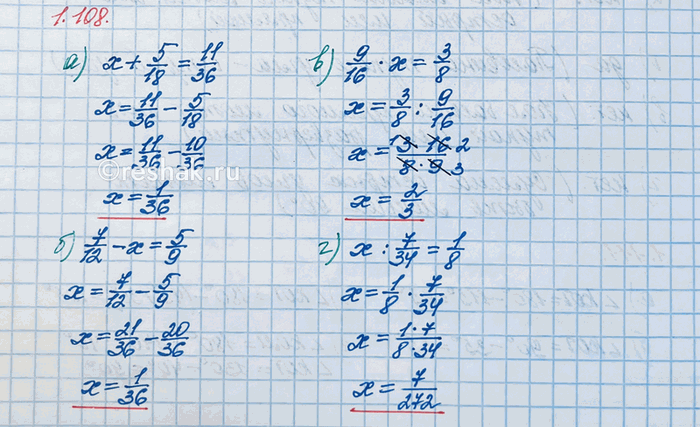 1.108.
а) x + 5/18 = 11/36
x = 11/36 - 5/18
x = 11/36 - 10/36
x = 1/36
б) 7/12 - x = 5/9
x = 7/12 - 5/9
x = 21/36 - 20/36
x = 1/36
в) 9/16 · x = 3/8
x = 3/8 : 9/16
x = 13 · 16 2/8 · 9 3
x = 2/3
г) x : 7/34 = 1/8
x = 1/8 · 7/34
x = 1·7/8·34
x = 7/272
©reshak.ru